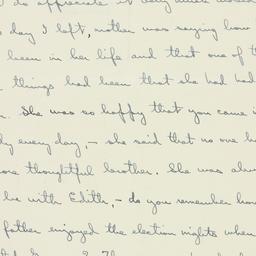 I do appreciate it very much
day I left, mother was saying how
been in her life and that one of t
things had been that she had had
She was so happy that you came i
every day, – she said that no one h
ore thoughtful brother. She was alw
be with Edith, – do you remember how
father enjoyed the election nights when